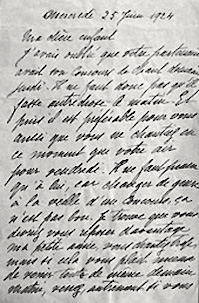 Mercredi 25 Juin 1924
Ma chère enfant
J'avais oublié que votre partenaire
avait son Concours de Chant demain
jeudi. Il ne faut donc pas qu'il
fasse autre chose le matin. Et
puis il est préférable pour vous
aussi que vous ne chantiez en
ce moment que votre air
pour vendredi. Il ne faut penser
qu'à lui, car changer de genre
à la veille d'un Concours, ça
n'est pas bon. Je trouve que vous
devriez vous reposer davantage
ma petite amie, vous chantez trop,
mais si cela vous plait
de venir tout de même demain
matin, venez autrement si vous